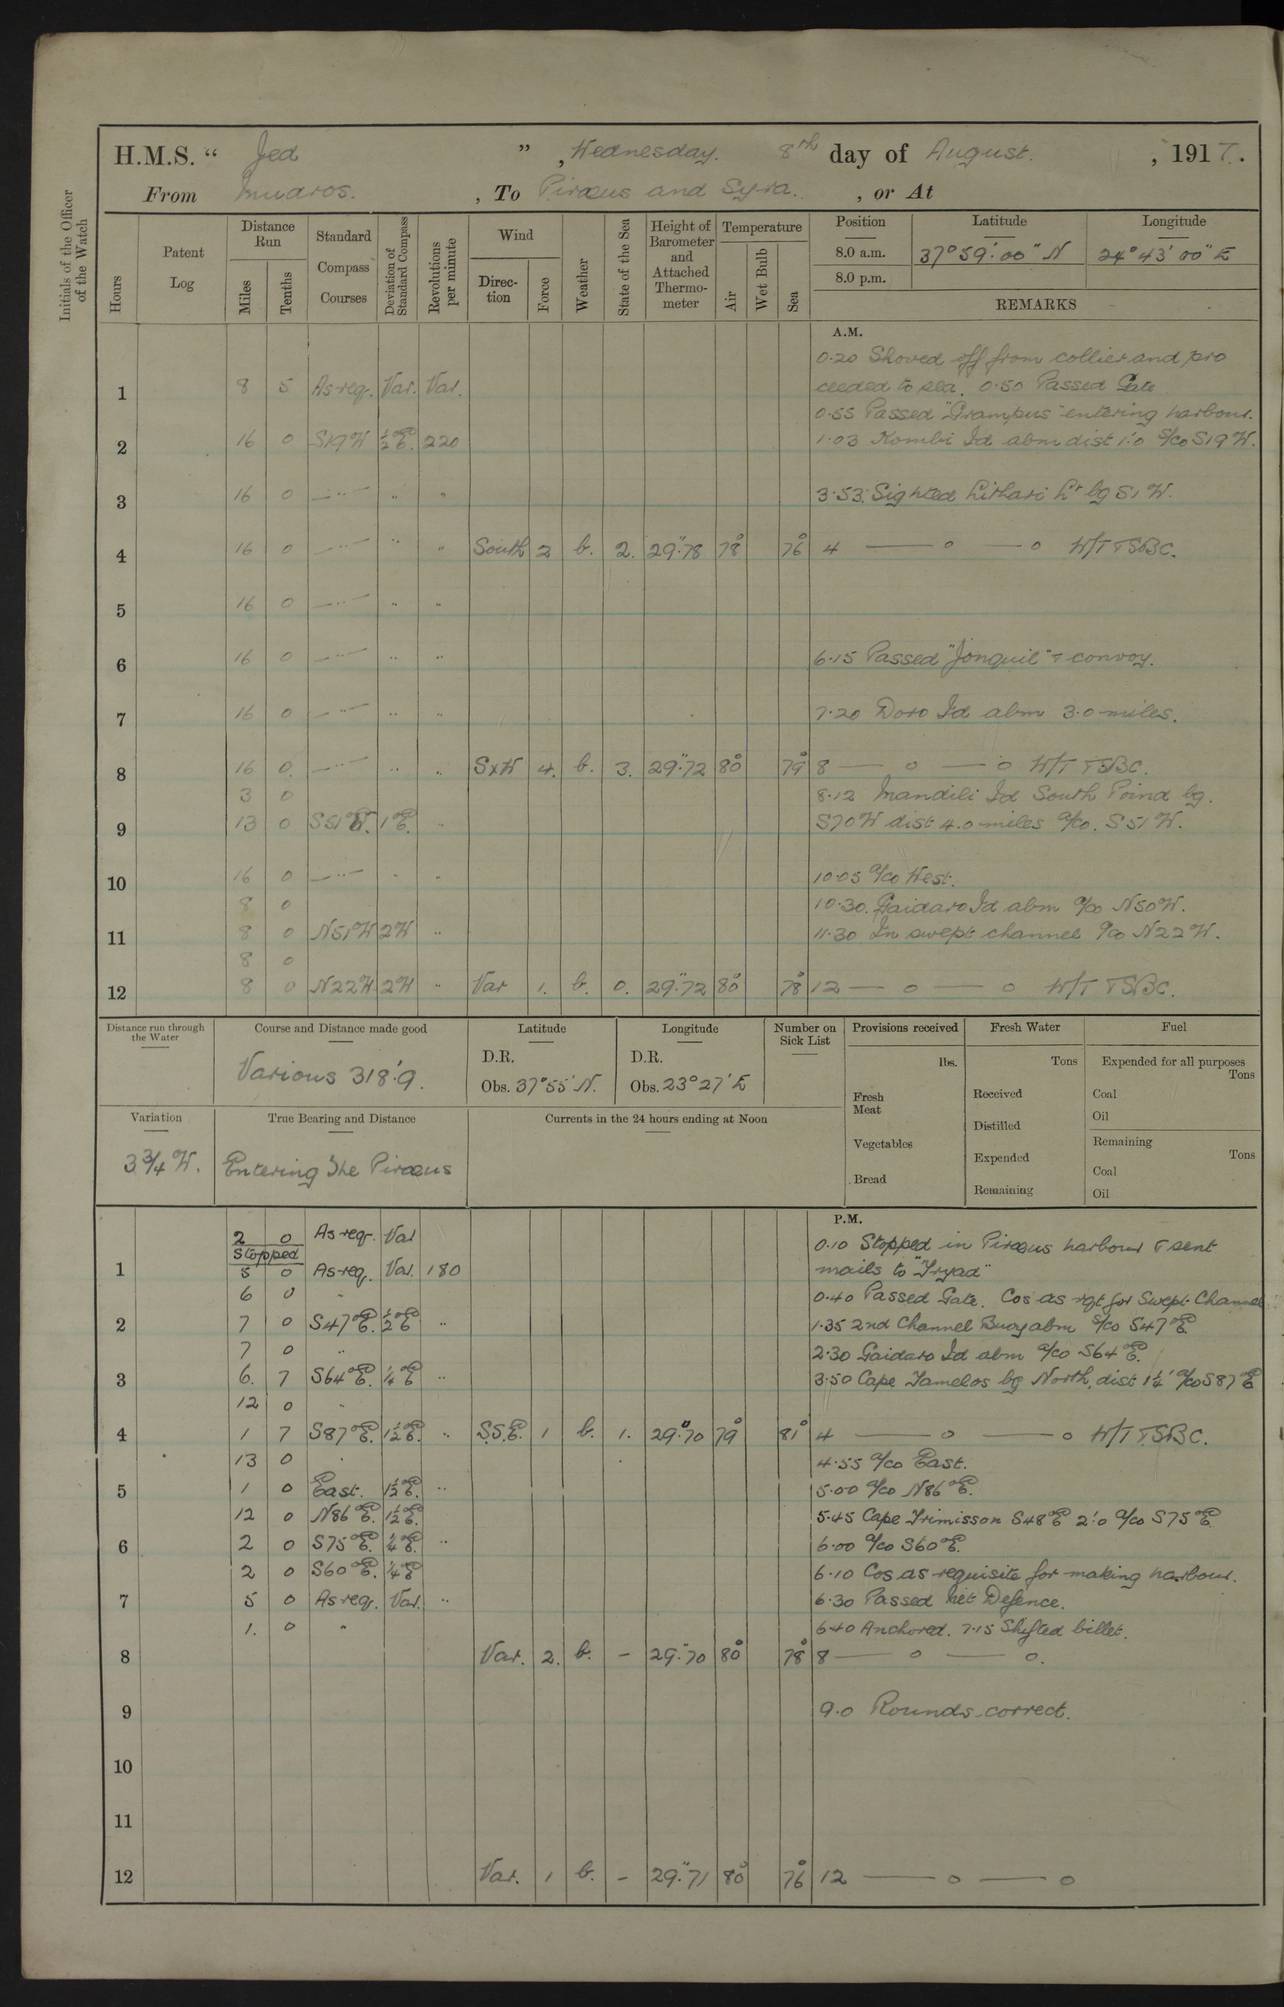 H.M.S. " Jed " , Wednesday. 8th day of August. , 1917.
From Mudros. , To Piræus and Syra. , or At
Initials of the Officer of the Watch
Hours
Patent Log
Distance Run
Miles
Tenths
Standard Compass Courses
Deviation of Standard Compass
Revolutions per minute
Wind
Direction
Force
Weather
State of the Sea
Height of Barometer and Attached Thermometer
Temperature
Air
Wet Bulb
Sea
Position Latitude Longitude
8.0 a.m. 37° 59' 00" N 24° 43' 00" E
8.0 p.m.
REMARKS
A.M.
0.20 Shoved off from collier and pro
1 8 5 As req. Var. Var. ceeded to sea. 0.50 Passed Gate
0.55 Passed "Grampus" entering harbour.
2 16 0 S19W ½E. 220 1.03 Kombi Id abm dist 1'.0 S/co S19W.
3 16 0 —"— " " 3.53. Sighted Lithari Lt bg S1W.
4 16 0 —"— " " South 2 b. 2. 29".78 78° 76° 4 — o — o W/T TSBC.
5 16 0 —"— " "
6 16 0 —"— " " 6.15 Passed "Jonquil" & convoy.
7 16 0 —"— " " 7.20 Doro Id abm 3.0 miles.
8 16 0. —"— " " SxW 4. b. 3. 29".72 80° 79° 8 — o — o W/T TSBC.
3 0 8.12 Mandili Id South Poind bg.
9 13 0 S51W. 1E. " S70W dist 4.0 miles a/co. S51W.
10 16 0 —"— " " 10.05 a/co West.
8 0 10.30. Gaidaro Id abm a/co N50W.
11 8 0 N51W 2W " 11.30 In swept channel a/co N22W.
8 0
12 8 0 N22W 2W " Var 1. b. 0. 29".72 80° 78° 12 — o — o W/T TSBC.
Distance run through the Water
Course and Distance made good
Various 318'.9.
Latitude
D.R.
Obs. 37° 55' N.
Longitude
D.R.
Obs. 23° 27' E
Number on Sick List
Provisions received
lbs.
Fresh Meat
Vegetables
Bread
Fresh Water
Tons
Received
Distilled
Expended
Remaining
Fuel
Expended for all purposes
Tons
Coal
Oil
Remaining
Tons
Coal
Oil
Variation
3¾ W.
True Bearing and Distance
Entering The Piræus
Currents in the 24 hours ending at Noon
P.M.
2 0 As req. Var 0.10 Stopped in Piræus harbour & sent
Stopped
1 5 0 As req. Var. 180 mails to "Tryad"
6 0 " 0.40 Passed Gate. Cos as rqt for Swept Channel
2 7 0 S47E. ½E " 1.35 2nd Channel Buoy abm S/co S47E
7 0 " 2.30 Gaidaro Id abm a/co S64E.
3 6. 7 S64E. ¼E " 3.50 Cape Tamelos bg North, dist 1¼' a/co S87E
12 0 "
4 1 7 S87E. 1½E. " S.S.E. 1 b. 1. 29".70 79° 81° 4 — o — o W/T TSBC.
13 0 " 4.55 a/co East.
5 1 0 East. 1½E. " 5.00 a/co N86E.
12 0 N86E. 1½E. 5.45 Cape Trimisson S48E 2'.0 a/co S75E
6 2 0 S75E. ¼E. " 6.00 a/co S60E.
2 0 S60E. ¼E 6.10 Cos as requisite for making harbour.
7 5 0 As req. Var. " 6.30 Passed Net Defence.
1. 0 " 6.40 Anchored. 7.15 Shifted billet.
8 Var. 2. b. - 29".70 80° 78° 8 — o — o.
9 9.0 Rounds correct.
10
11
12 Var. 1 b. - 29".71 80° 76° 12 — o — o